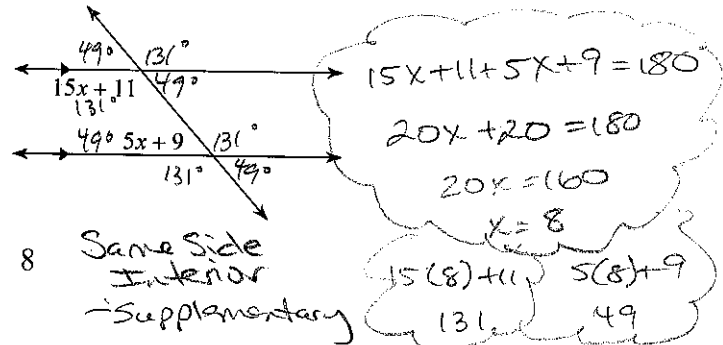 49° 131°
15x + 11 49°
131°
49° 5x + 9 131°
131° 49°
15x+11+5x+9=180
20x+20=180
20x=160
x=8
8 Same Side
Interior
-Supplementary
15(8)+11 5(8)+9
131 49